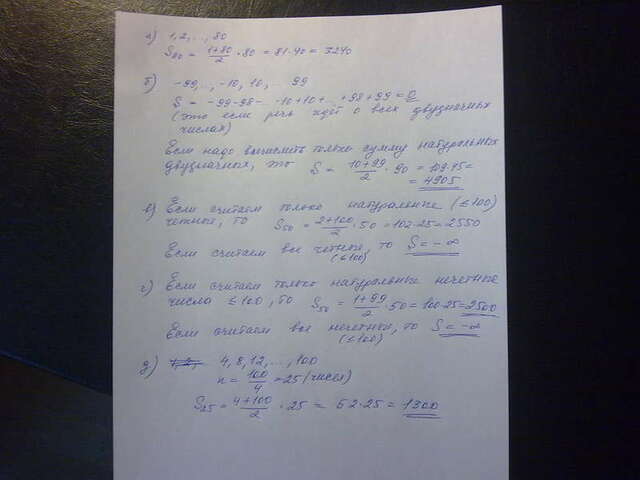 а) 1, 2, ..., 80
S₈₀ = (1+80)/2 · 80 = 81·40 = 3240
б) -99, ..., -10, 10, ... 99
S = -99-98-...-10+10+...+98+99 = 0
(это если речь идёт о всех двузначных
числах)
Если надо вычислить только сумму натуральных
двузначных, то S = (10+99)/2 · 90 = 109·45 =
= 4905
в) Если считаем только натуральные (≤100)
четные, то S₅₀ = (2+100)/2 · 50 = 102·25 = 2550
Если считаем все четные, то S = -∞
(≤100)
г) Если считаем только натуральные нечетные
числа ≤100, то S₅₀ = (1+99)/2 · 50 = 100·25 = 2500
Если считаем все нечетные, то S = -∞
(≤100)
д) 4, 8, 12, ..., 100
n = 100/4 = 25 (чисел)
S₂₅ = (4+100)/2 · 25 = 52·25 = 1300